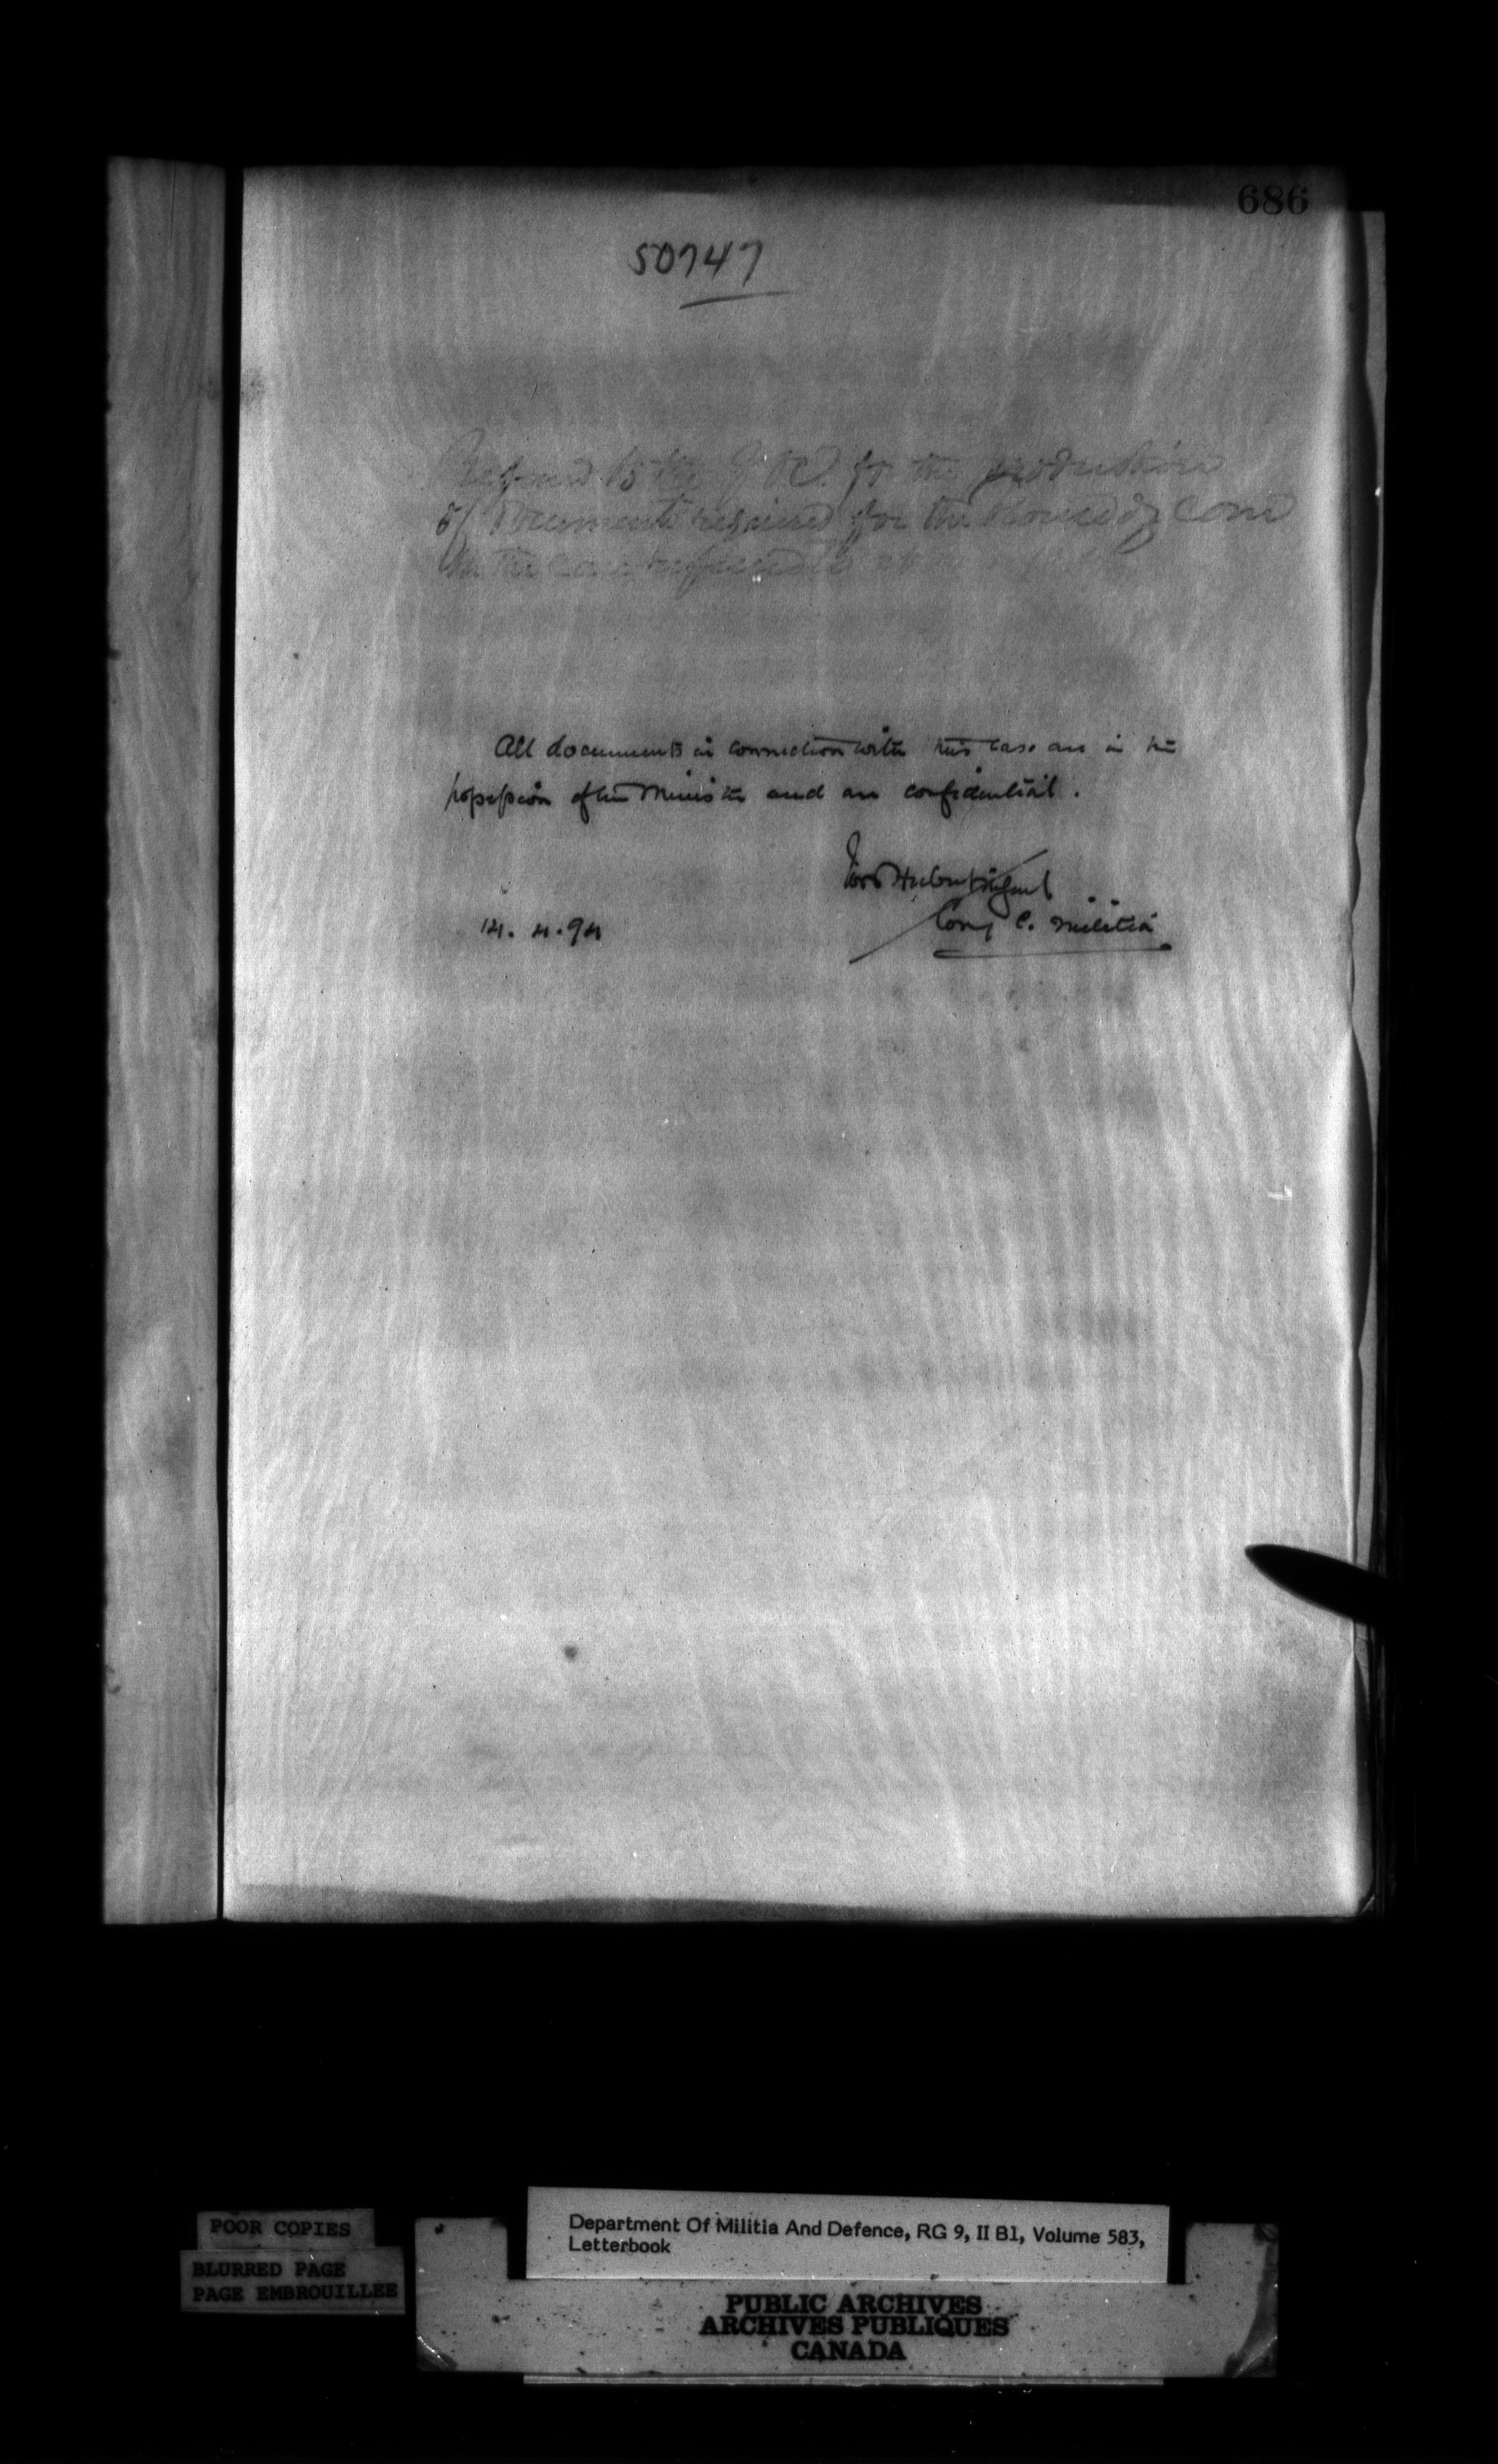 686
50747
Referred to the G.O.C. for the production
of documents required for the House of Com
in the case referred to
All documents in connection with this case are in the
possession of the Minister and are confidential.
Ivor Herbert
14. 4. 94
Comg C. Militia
POOR COPIES
BLURRED PAGE
PAGE EMBROUILLEE
Department Of Militia And Defence, RG 9, II B1, Volume 583,
Letterbook
PUBLIC ARCHIVES
ARCHIVES PUBLIQUES
CANADA